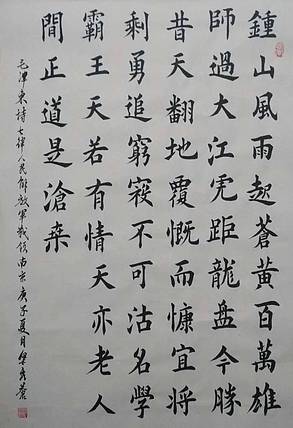 鍾山風雨起蒼黃百萬雄
師過大江虎距龍盤今勝
昔天翻地覆慨而慷宜將
剩勇追窮寇不可沽名學
霸王天若有情天亦老人
間正道是滄桒
毛澤東詩七律人民解放軍領南京庚子夏月